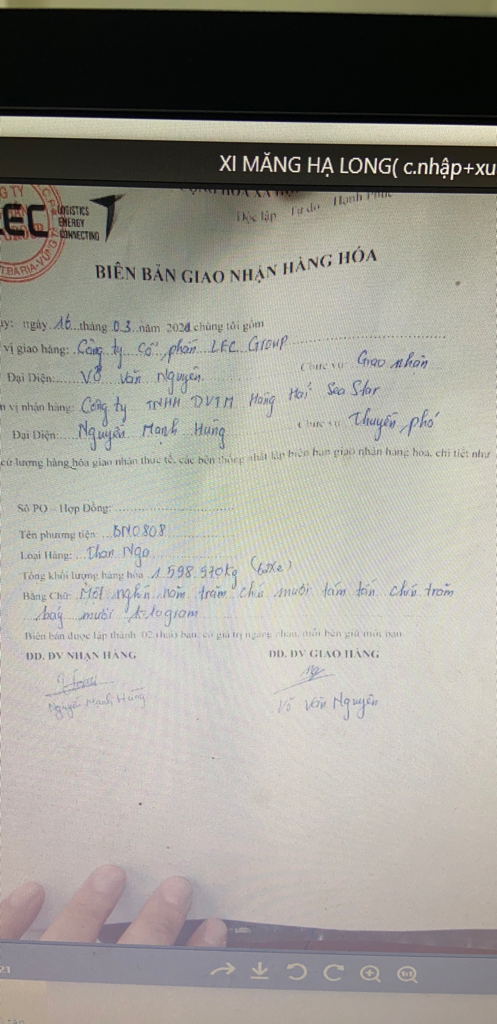 XI MĂNG HẠ LONG( c.nhập+xu
G TY
LEC LOGISTICS
ENERGY
CONNECTING
T.BÀ RỊA-VŨNG
Độc lập Tự do Hạnh Phúc
BIÊN BẢN GIAO NHẬN HÀNG HÓA
ay: ngày 16 tháng 03 năm 2021 chúng tôi gồm
vị giao hàng: Công ty Cổ phần LEC Group
Đại Diện: Võ Văn Nguyên Chức vụ: Giao nhận
n vị nhận hàng: Công ty TNHH DVTM Hàng Hải Sea Star
Đại Diện: Nguyễn Mạnh Hùng Chức vụ: Thuyền phó
cứ lượng hàng hóa giao nhận thực tế, các bên thống nhất lập biên bản giao nhận hàng hóa, chi tiết như
Số PO – Hợp Đồng:
Tên phương tiện BN0808
Loại Hàng: Than Ngo
Tổng khối lượng hàng hóa 1 598.970kg
Bằng Chữ: Một nghìn năm trăm chín mươi tám tấn chín trăm
bảy mươi kilogram
Biên bản được lập thành 02 bản, có giá trị ngang nhau, mỗi bên giữ một bản
ĐD. ĐV NHẬN HÀNG ĐD. ĐV GIAO HÀNG
Nguyễn Mạnh Hùng
Võ Văn Nguyên
21
1:1